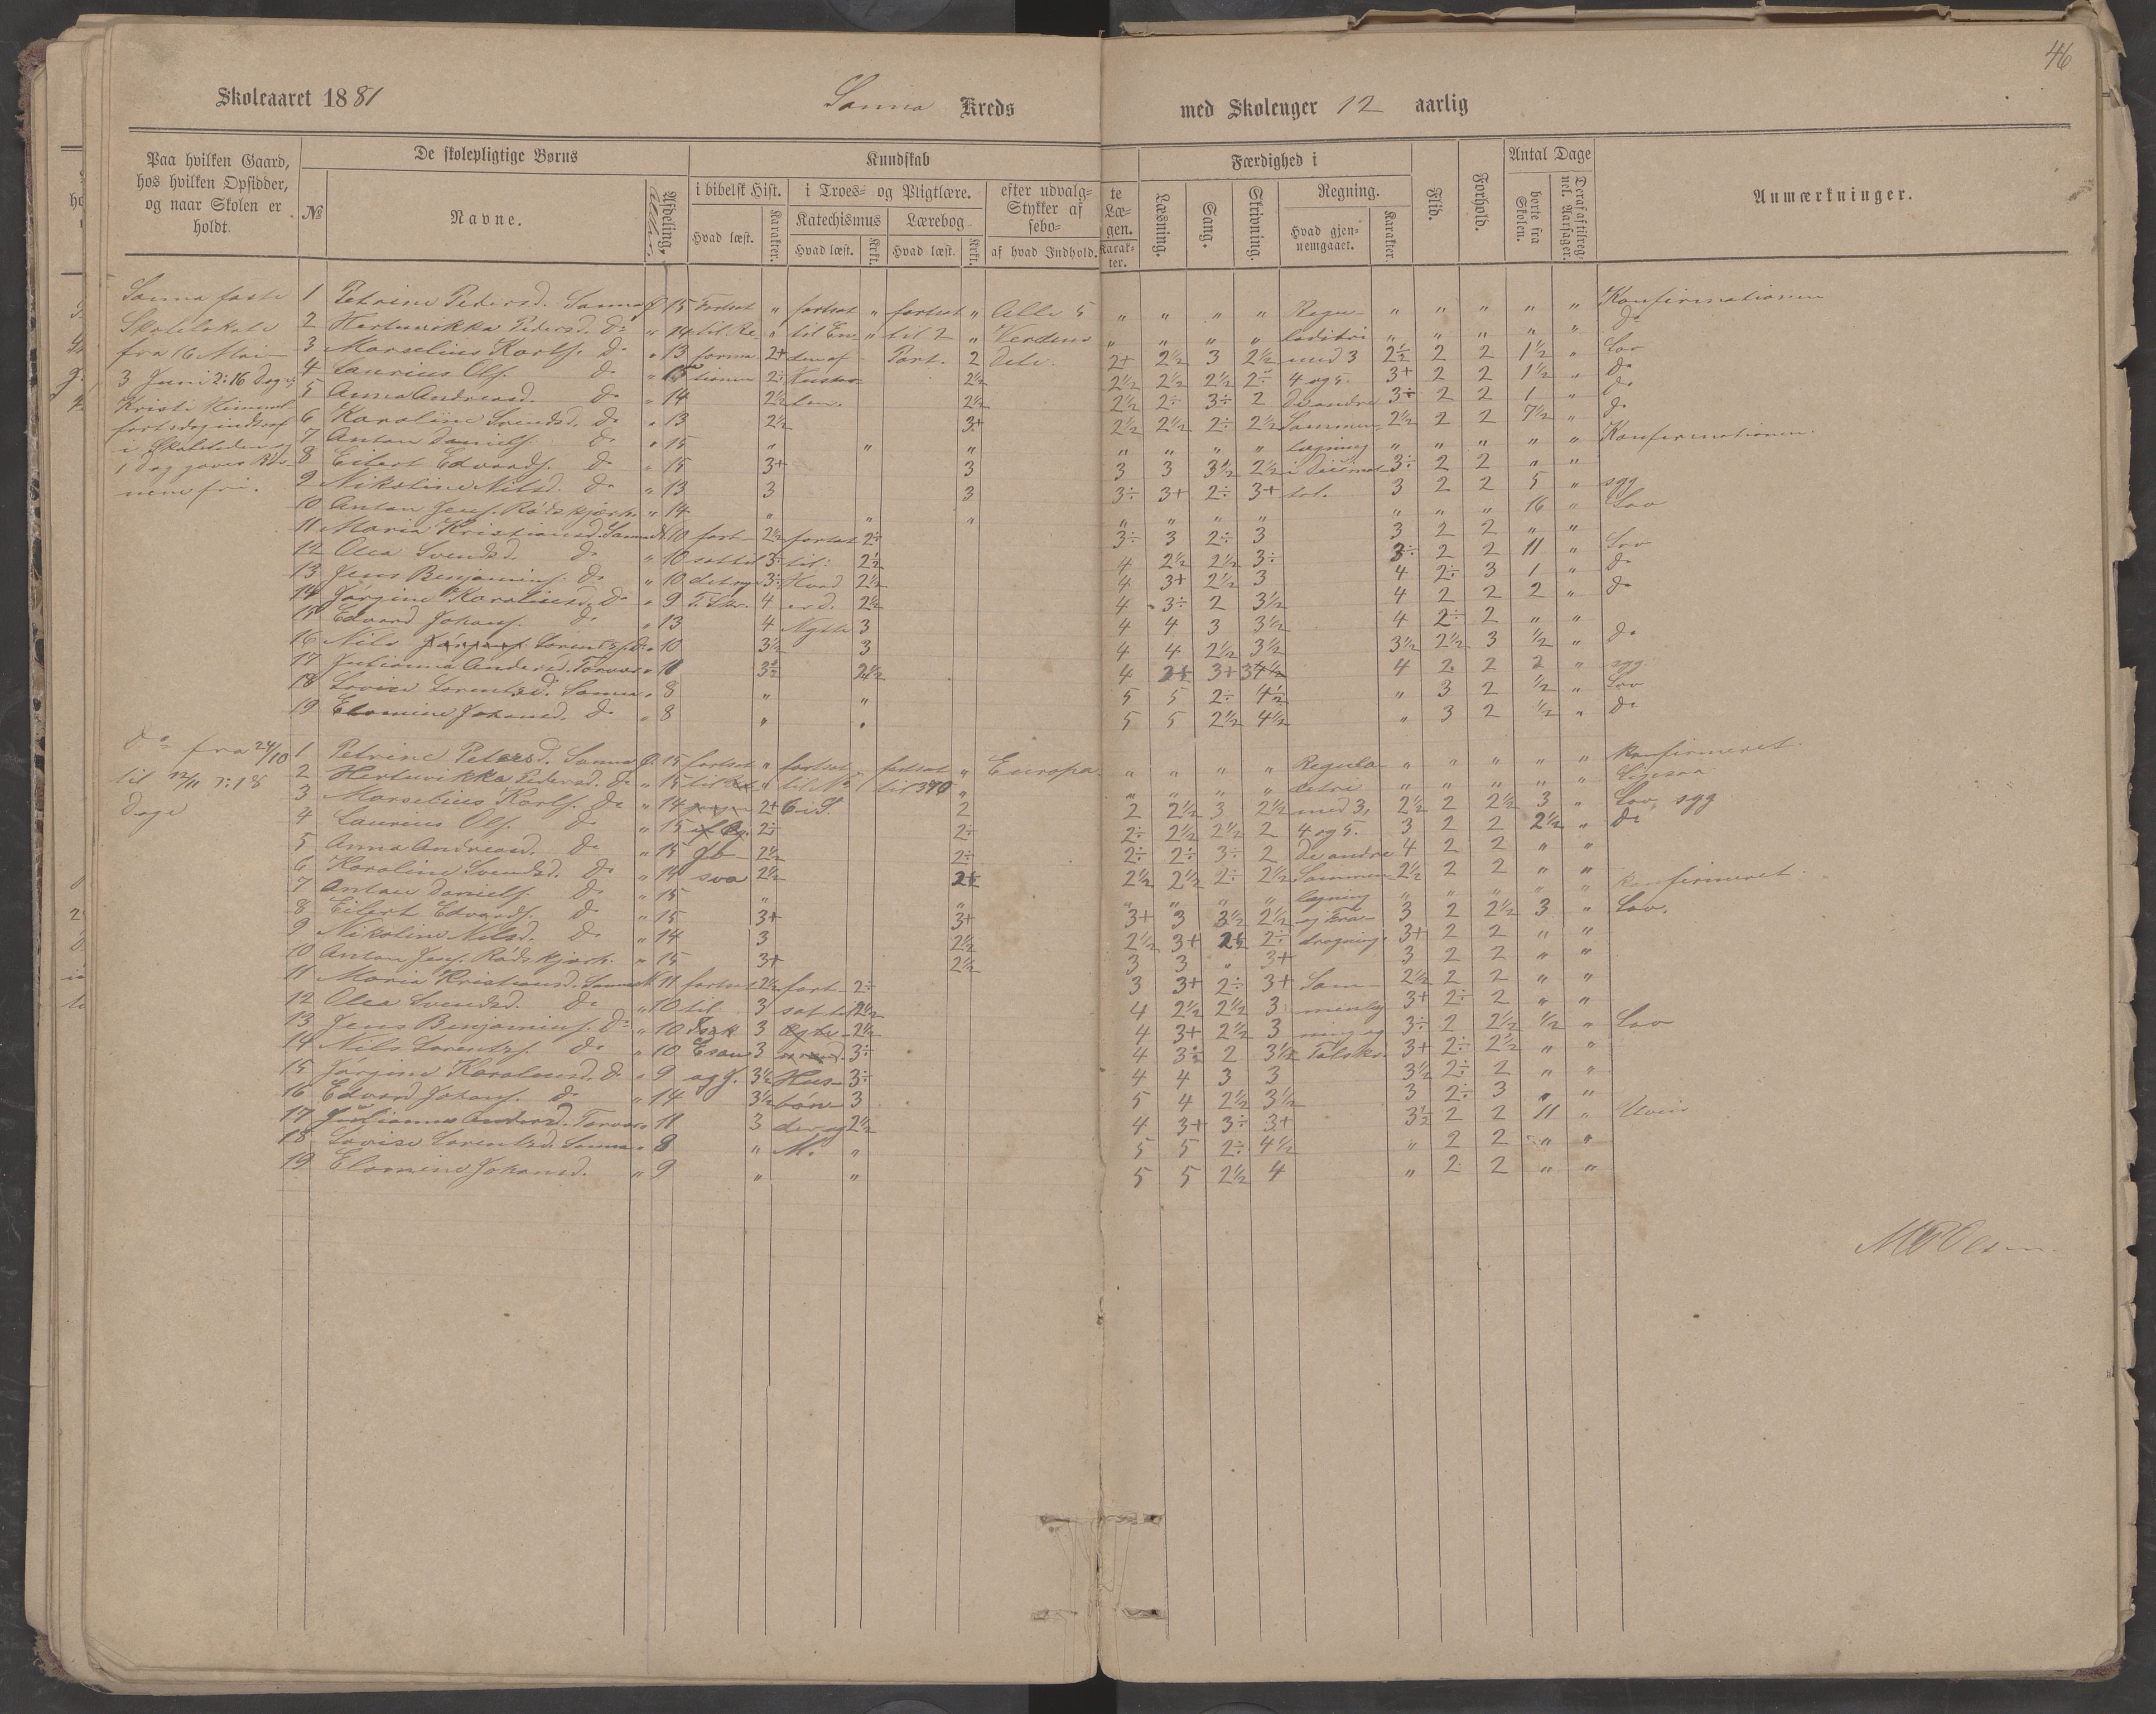 46
Skoleaaret 1881 Sanna Kreds med Skoleuger 12 aarlig
Paa hvilken Gaard, hos hvilken Opsidder, og naar Skolen er holdt.
De skolepligtige Børns
№ Navne. Alder. Afdeling.
Kundskab
i bibelsk Hist. Hvad læst. Karakter.
i Troes- og Pligtlære.
Katechismus Hvad læst. Krkt.
Lærebog Hvad læst. Krkt.
efter udvalgte Stykker af Læsebogen. af hvad Indhold. Karakter.
Færdighed i
Læsning. Sang. Skrivning.
Regning. Hvad gjennemgaaet. Karakter.
Flid. Forhold.
Antal Dage
borte fra Skolen. Deraf af tilregnel. Aarsager.
Anmærkninger.
Sanna faste
Skolelokale
fra 16 Mai
3 Juni 2: 16 Dage,
Kristi Himmel-
fartsdag indtraf
i Skoletiden og
1 Dag gaves Bør-
nene fri.
1 Petrine Pedersd. Sanna 15 Fortsat " fortsat " fortsat " Alle 5 " " " " Regu- " " " " " Konfirmationen
2 Hertuvikka Pedersd. Do " 14 til Re " til En " til 2 " Verdens " " " " ladetri " " " " " Do
3 Marselius Karls. Do " 13 forma 2+ den af Part. 2 Dele. 2+ 2½ 3 2½ med 3 2½ 2 2 1½ " Lov
4 Laurius Ols. Do " tionen 2÷ 2½ 2½ 2½ 2½ 2÷ 4 og 5. 3+ 2 2 1½ " Do
5 Anna Andreasd. Do " 14 2½ 2½ 2½ 2÷ 3÷ 2 de andre 3÷ 2 2 1 " Do
6 Karoline Svendsd. Do " 13 2½ 3+ 2½ 2½ 2÷ 2½ Sammen- 2½ 2 2 7½ " Do
7 Anton Daniels. Do " 15 " " " " " " " lægning " " " " " Konfirmationen.
8 Eilert Edvards. Do " 15 3+ 3 3 3 3½ 2½ i Decimal- 3÷ 2 2 " "
9 Nikoline Nilsd. Do " 13 3 3 3÷ 3+ 2÷ 3+ tal. 3 2 2 5 " syg
10 Anton Jens. Rødskjærh. " 14 " " " " " " " " " " 16 " Lov
11 Maria Kristiansd. Sanna 10 fort- 2½ fortsat 2÷ 3÷ 3 2÷ 3 3 2 2 " "
12 Olea Svendsd. Do " 10 sat til 3÷ til: 2½ 4 2½ 2½ 3÷ 3÷ 2 2 11 " Lov
13 Jens Benjamins. Do " 10 det nye 3÷ Hvad 2½ 4 3+ 2½ 3 4 2÷ 3 1 " Do
14 Jørgine Karoliusd. Do " 9 T. 4 er d. 2½ 4 3÷ 2 3½ 4 2 2 2 " Do
15 Edvard Johans. Do " 13 4 Nytte 3 4 4 3 3½ 4 2÷ 2 " "
16 Nils Lorentzs. Do " 10 3½ 3 4 4 2½ 3½ 3½ 2½ 3 ½ " Do
17 Julianna Andersd. Torvær " 3½ 2½ 4 3+ 4 2 2 2 " syg
18 Lovise Lorentzsd. Sanna " 8 " " 5 5 2÷ 4½ " 3 2 ½ " Lov
19 Elomine Johansd. Do " 8 " " 5 5 2½ 4½ " 3 2 ½ " Do
Do fra 24/10
til 12/11 : 18
Dage
1 Petrine Petersd. Sanna 15 fortsat " fortsat fortsat " Europa. " " " " Regula- " " " " " Konfirmeret.
2 Hertuvikka Pedersd. Do " 15 til " til № til 390 " " " " " detri " " " " " Ligesaa
3 Marselius Karls. Do " 14 2+ 6 i S. 2 2 2½ 3 2½ med 3, 2½ 2 2½ 3 " Lov, syg
4 Laurius Ols. Do " 15 2÷ 2÷ 2÷ 2½ 2½ 2 4 og 5. 3 2 2 2½ " Do
5 Anna Andreasd. Do " 15 2½ 2÷ 2÷ 2÷ 3÷ 2 de andre 4 2 2 " "
6 Karoline Svendsd. Do " 14 2½ 2½ 2½ 2½ 2÷ 2½ Sammen- 2½ 2 2 " "
7 Antan Daniels. Do " 15 " " " " " " lægning " " " " " Konfirmeret.
8 Eilert Edvards. Do " 15 3+ 3+ 3+ 3 3½ 2½ og Fra- 3 2 2½ 3 " Lov.
9 Nikoline Nilsd. Do " 14 3 2½ 2½ 3+ 2½ 2÷ dragning. 3+ 2 2 " "
10 Anton Jens. Rødskjærh. " 15 3+ 2½ 3 3 " 3+ 3 2 2 " "
11 Maria Kristiansd. Sanna 11 fortsat 2½ fort- 2÷ 3 3+ 2÷ 3+ Sam- 2½ 2 2 " "
12 Olea Svendsd. Do " 10 til 3 sat til 2½ 4 2½ 2½ 3 menlæg- 3+ 2÷ 2 " "
13 Jens Benjamins. Do " 10 3 2½ 4 3+ 2½ 3 ning og 3÷ 2 2½ ½ " Lov
14 Nils Lorentzs. Do " 10 Esau 3 3÷ 4 3½ 2 3½ Talskr. 3+ 2÷ 2½ " "
15 Jørgine Karoliusd. Do " 9 og J. 3½ Hus- 3÷ 4 4 3 3 3½ 2÷ 2 " "
16 Edvard Johans. Do " 14 3½ bøn- 3 5 4 2½ 3½ 3 2÷ 3 " "
17 Julianna Andersd. Torvær " 11 3 der og 2½ 4 3+ 3÷ 3+ 3½ 2 2 11 "
18 Lovise Lorentzsd. Sanna " 8 " M. " 5 5 2÷ 4½ " 2 2 " "
19 Elomine Johansd. " 9 " " 5 5 2½ 4 " 2 2 " "